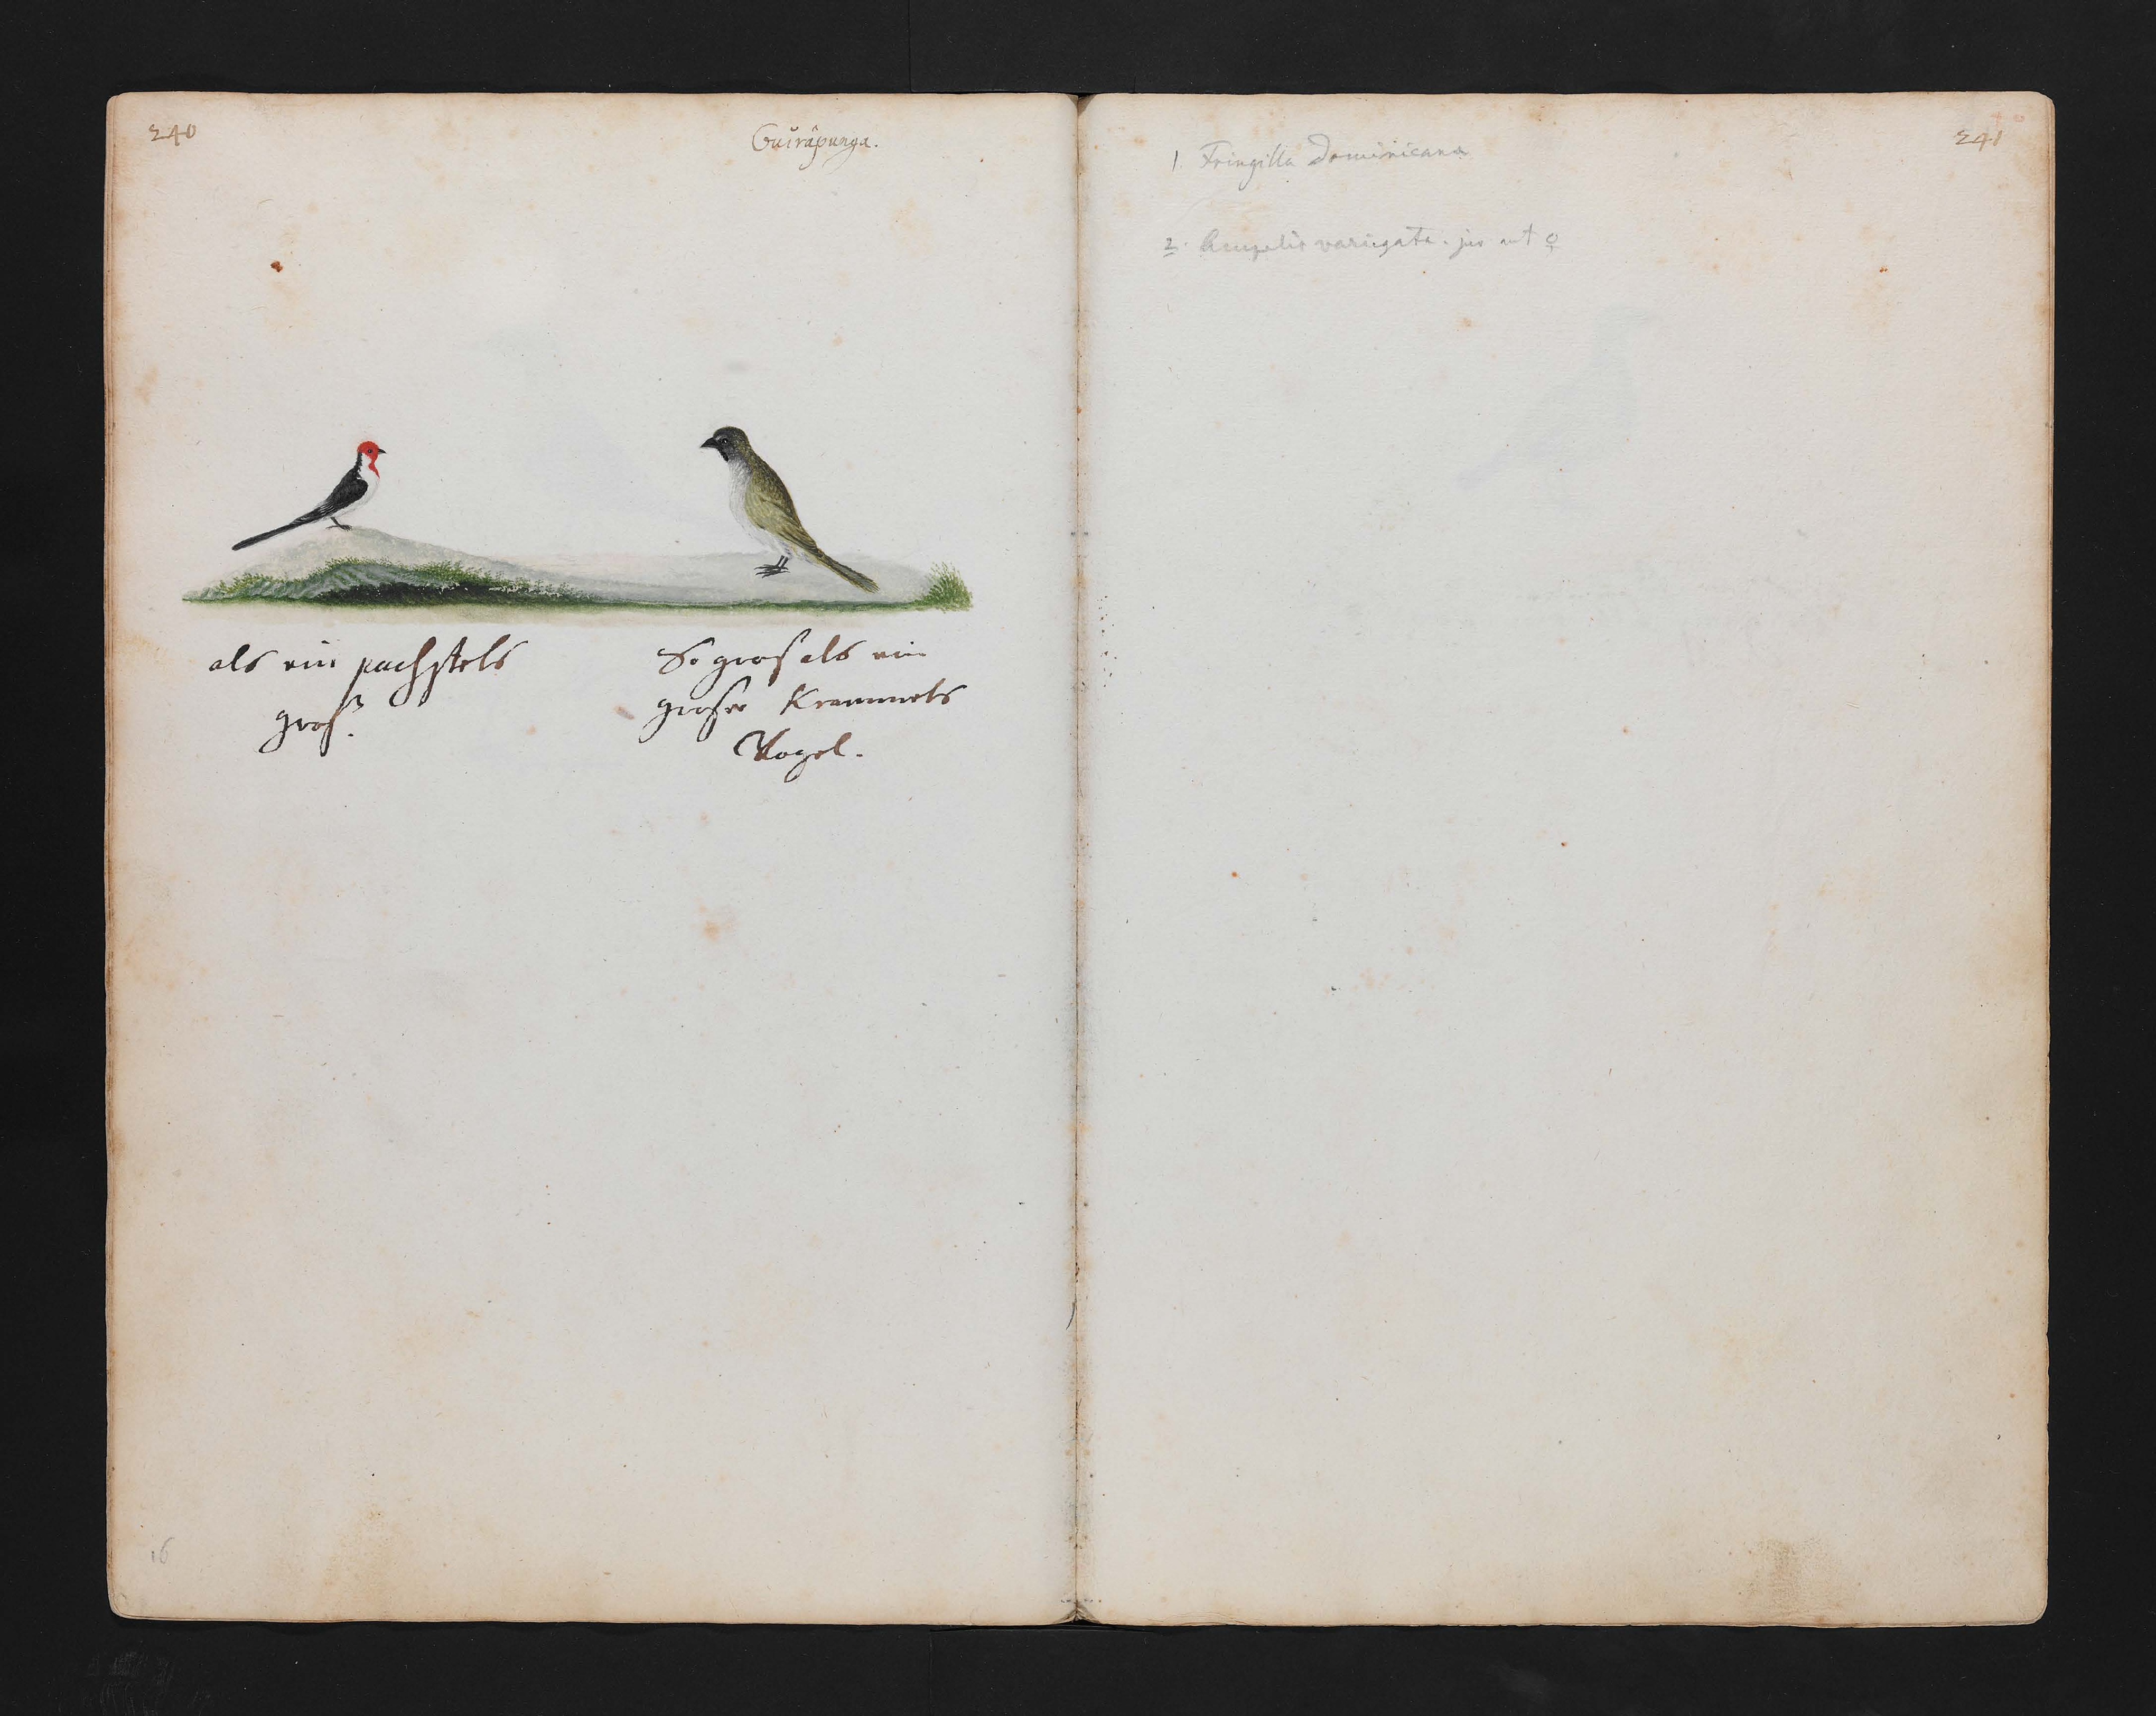 240
Guirapunga.
als ein pachstels
groß.
So gros als ein
groser Krammets
Vogel.
16
241
1. Fringilla Dominicana
2. Ampelis variegata. juv aut ♀